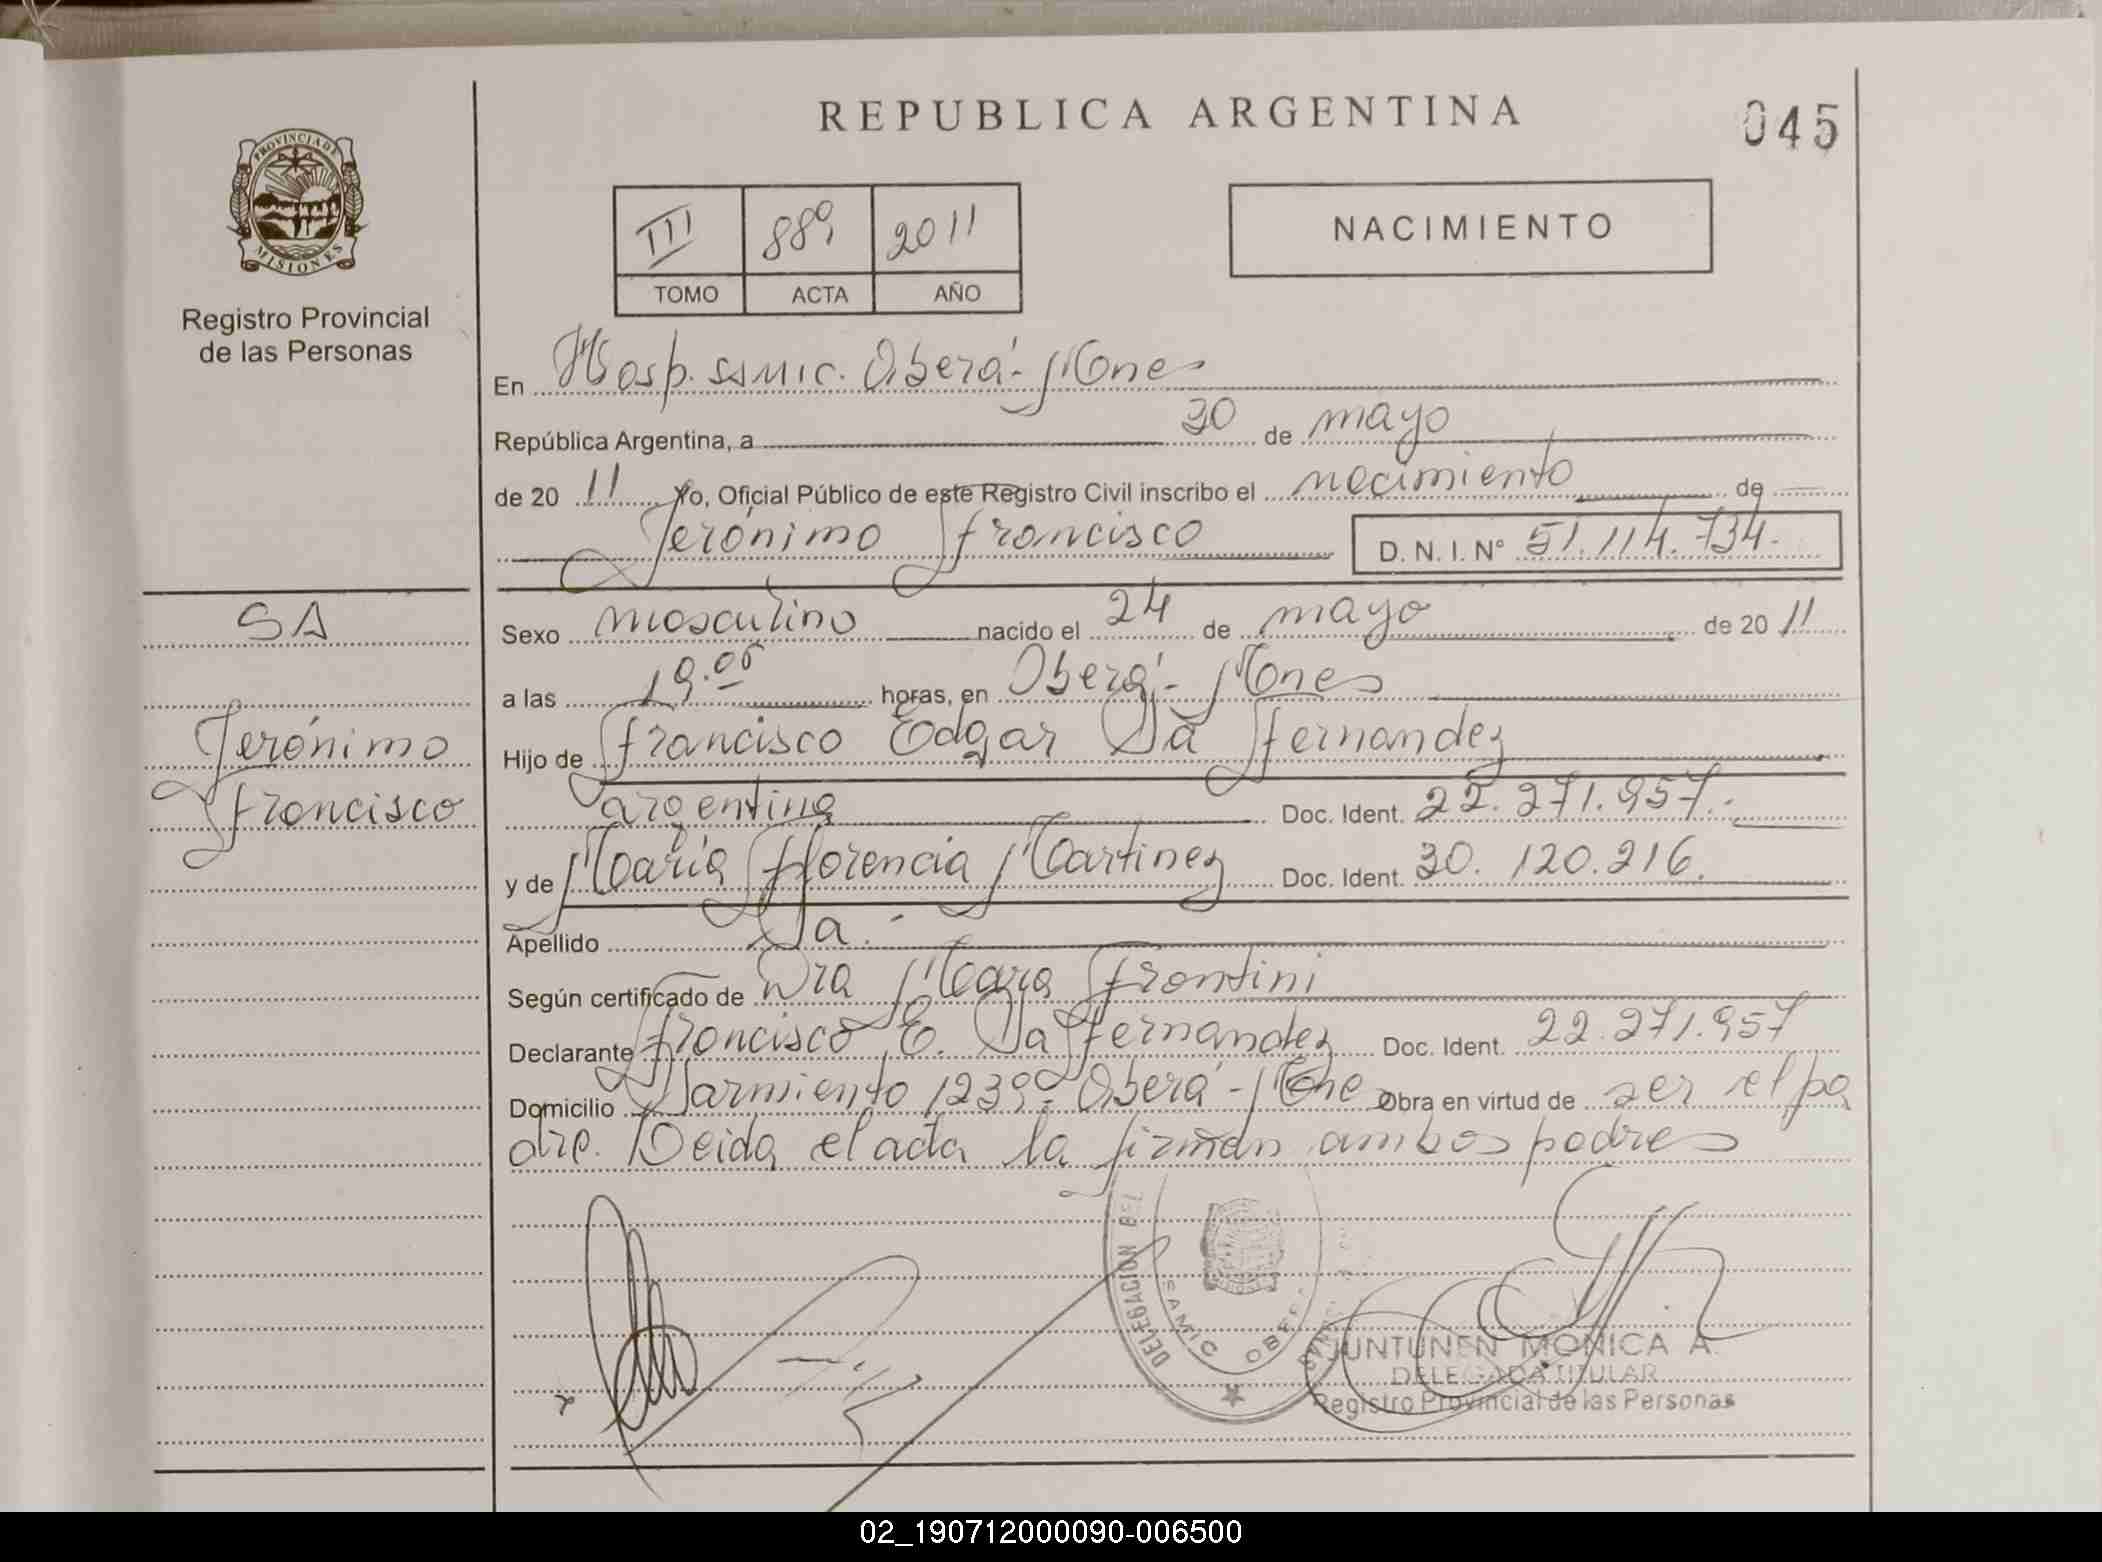 REPUBLICA ARGENTINA
045
PROVINCIA DE
MISIONES
Registro Provincial
de las Personas
III 889 2011
TOMO ACTA AÑO
NACIMIENTO
En Hosp. SAMIC. Oberá - Mones
República Argentina, a 30 de mayo
de 20 11 Yo, Oficial Público de este Registro Civil inscribo el nacimiento de
Jerónimo Francisco D. N. I. N° 51.114.734.
SA
Jerónimo
Francisco
Sexo masculino nacido el 24 de mayo de 20 11
a las horas, en Oberá - Mones
Hijo de Francisco Edgar Sa Fernandez
argentina Doc. Ident. 22.271.957.
y de María Florencia Martinez Doc. Ident. 30.120.216.
Apellido Sa.-
Según certificado de Dra Mara Frontini
Declarante Francisco E. Sa Fernandez Doc. Ident. 22.271.957
Domicilio Sarmiento 1239- Oberá - Mones Obra en virtud de ser el pa
dre. Leida el acta la firman ambos padres
DELEGACION DEL
SAMIC OBERA
JUNTUNEN MONICA A.
DELEGADA TITULAR
Registro Provincial de las Personas
02_190712000090-006500